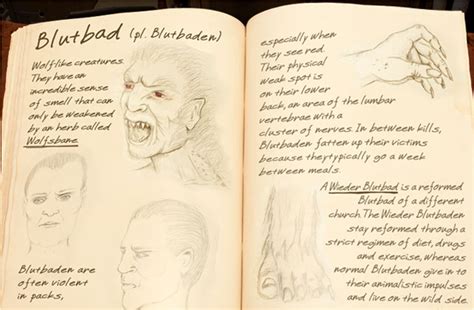 Blutbad (pl. Blutbaden)
Wolflike creatures.
They have an
incredible sense
of smell that can
only be weakened
by an herb called
Wolfsbane.
Blutbaden are
often violent
in packs,
especially when
they see red.
Their physical
weak spot is
on their lower
back, an area of the lumbar
vertebrae with a
cluster of nerves. In between kills,
Blutbaden fatten up their victims
because they typically go a week
between meals.
A Wieder Blutbad is a reformed
Blutbad of a different
church. The Wieder Blutbaden
stay reformed through a
strict regimen of diet, drugs
and exercise, whereas
normal Blutbaden give in to
their animalistic impulses
and live on the wild side.